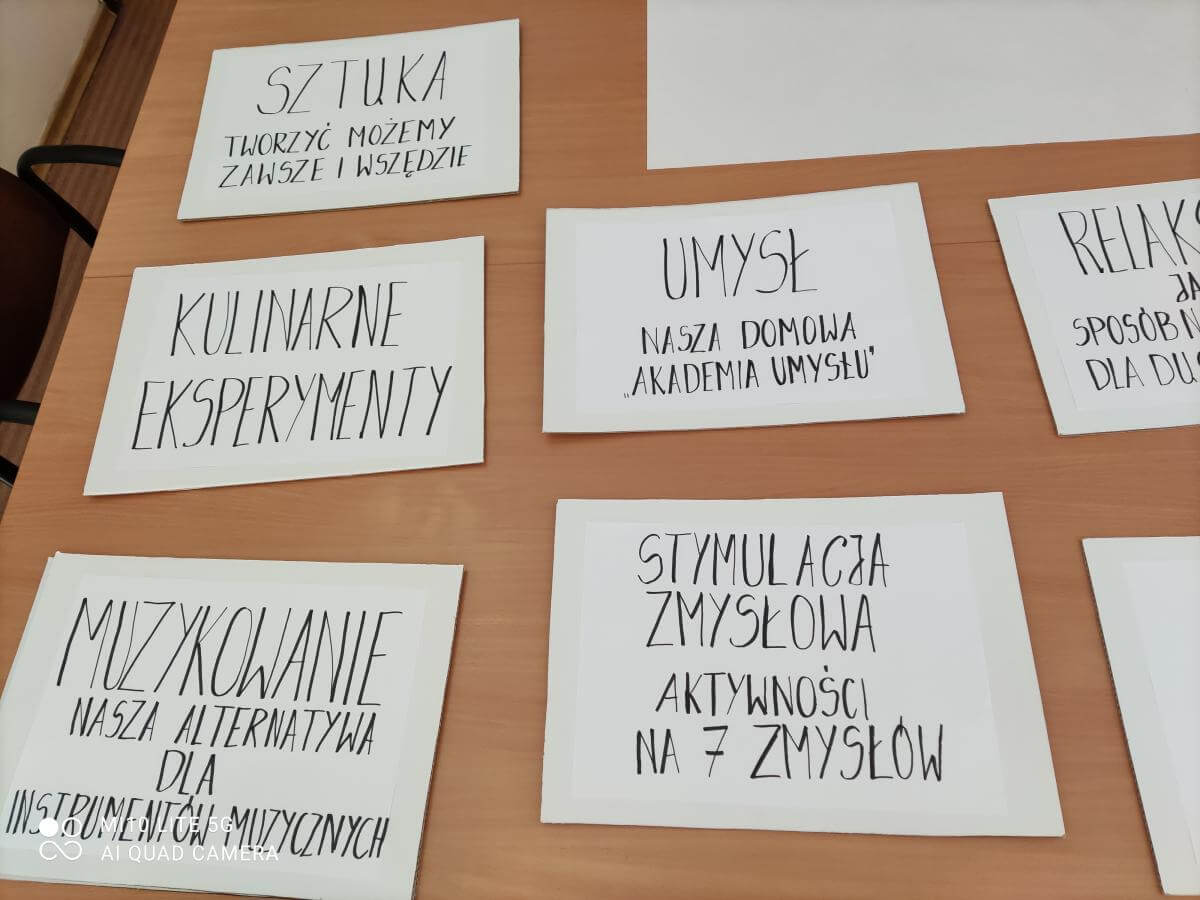 SZTUKA
TWORZYĆ MOŻEMY
ZAWSZE I WSZĘDZIE
KULINARNE
EKSPERYMENTY
UMYSŁ
NASZA DOMOWA
„AKADEMIA UMYSŁU"
SPOSÓB
DLA
MUZYKOWANIE
NASZA ALTERNATYWA
DLA
INSTRUMENTÓW MUZYCZNYCH
STYMULACJA
ZMYSŁOWA
AKTYWNOŚCI
NA 7 ZMYSŁÓW
MI 10 LITE 5G
AI QUAD CAMERA